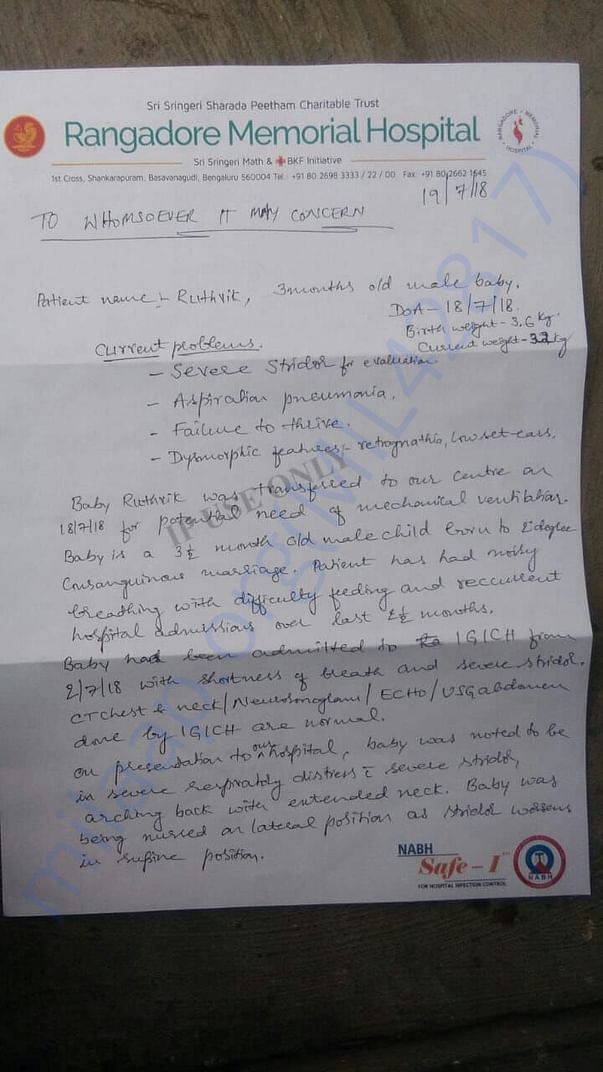 Sri Sringeri Sharada Peetham Charitable Trust
Rangadore Memorial Hospital
RANGADORE MEMORIAL HOSPITAL
Sri Sringeri Math & BKF Initiative
1st Cross, Shankarapuram, Basavanagudi, Bengaluru 560004 Tel : +91 80 2698 3333 / 22 / 00 Fax: +91 80 2662 1645
19/7/18
TO WHOMSOEVER IT MAY CONCERN
Patient name :- Ruthvik, 3months old male baby.
DOA - 18/7/18.
Birth weight - 3.6 kg.
Current weight - 3.2 kg
Current problems.
- Severe Stridor for evaluation
- Aspiration pneumonia.
- Failure to thrive.
- Dysmorphic features :- retrognathia, low set-ears.
Baby Ruthvik was transferred to our centre on
18/7/18 for potential need of mechanical ventilation.
Baby is a 3½ month old male child born to 2°degree
Consanguinous marriage. Patient has had noisy
breathing with difficulty feeding and reccurent
hospital admissions over last 2½ months.
Baby had been admitted to IGICH from
2/7/18 with shortness of breath and severe stridor.
CTchest & neck/Neurosonogram/ECHO/USGabdomen
done by IGICH are normal.
On presentation to our hospital, baby was noted to be
in severe respiratory distress c̄ severe stridor,
arching back with extended neck. Baby was
being nursed on lateral position as stridor worsens
in supine position.
NABH
Safe-I
FOR HOSPITAL INFECTION CONTROL
NABH
IP USE ONLY
milaap.org(MIL42817)